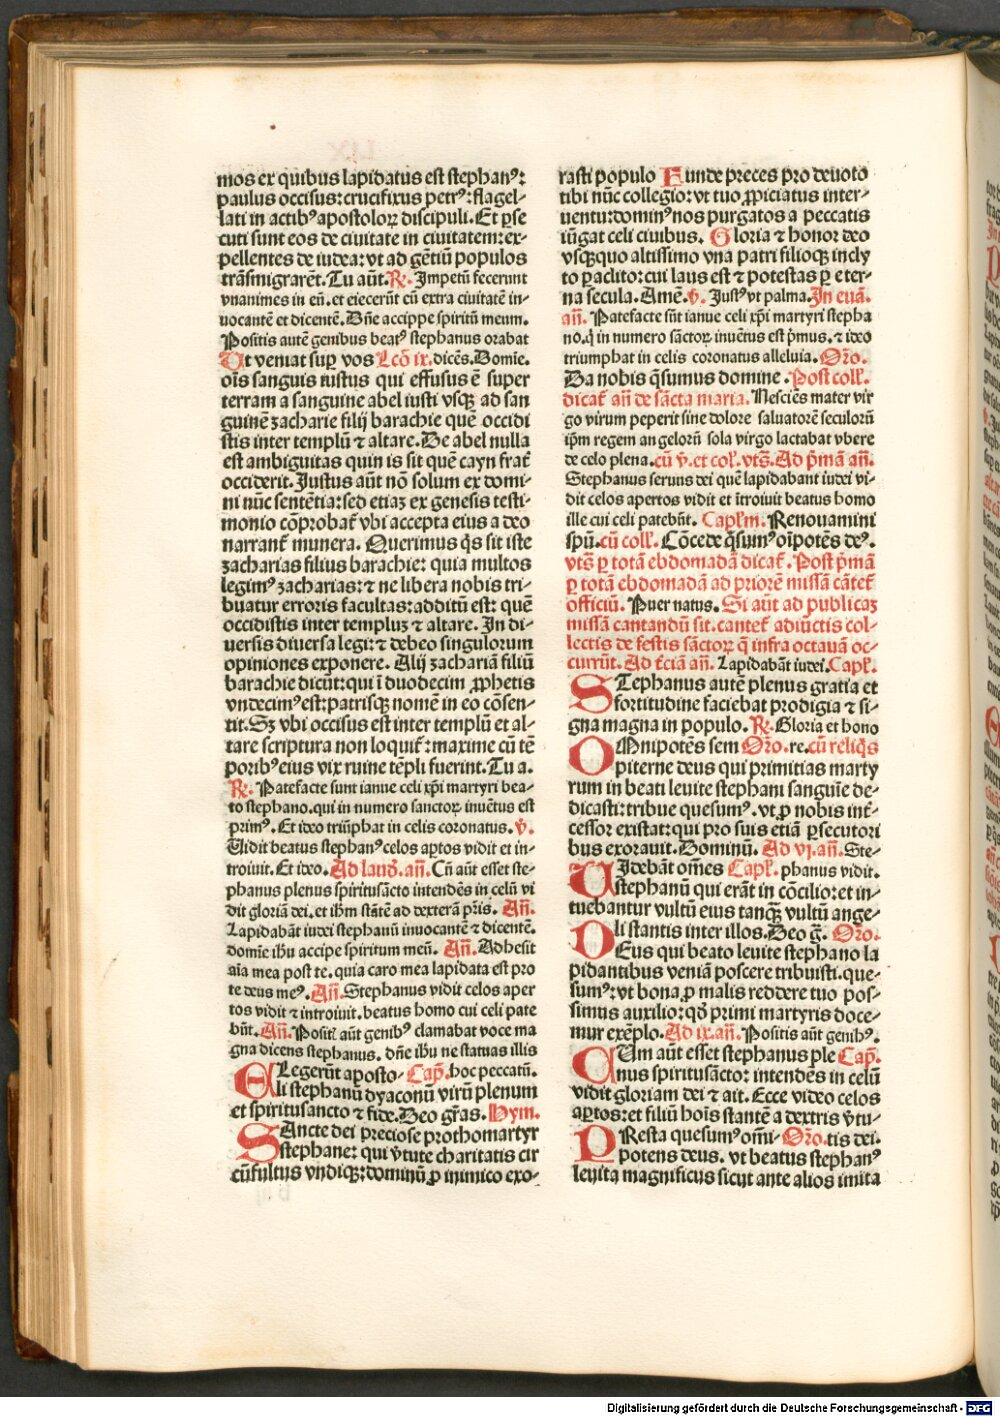 mos ex quibus lapidatus est stephanꝰ:
paulus occisus: crucifixus petrꝰ: flagel-
lati in actibꝰ apostoloꝝ discipuli. Et ꝑse
cuti sunt eos de ciuitate in ciuitatem: ex-
pellentes de iudea: vt ad gētiū populos
trāsmigrarēt. Tu aūt. R̄. Impetū fecerunt
vnanimes in eū. et eiecerūt eū extra ciuitatē in-
uocantē et dicentē. Dn̄e accippe spiritū meum.
Positis autē genibus beatꝰ stephanus orabat
Ut veniat suꝑ vos Lcō ix. dicēs. Domie.
oīs sanguis iustus qui effusus ē super
terram a sanguine abel iusti vsqꝫ ad san
guinē zacharie filij barachie quē occidi
stis inter templū ⁊ altare. De abel nulla
est ambiguitas quin is sit quē cayn frat̄
occiderit. Justus aūt nō solum ex domi-
ni nūc sentētia: sed etiaꝫ ex genesis testi-
monio cōprobat̄ vbi accepta eius a deo
narrant̄ munera. Querimus q̄s sit iste
zacharias filius barachie: quia multos
legimꝰ zacharias: ⁊ ne libera nobis tri-
buatur erroris facultas: additū est: quē
occidistis inter templuꝫ ⁊ altare. In di-
uersis diuersa legi: ⁊ debeo singulorum
opiniones exponere. Alij zachariā filiū
barachie dicūt: qui ī duodecim ꝓphetis
vndecimꝰ est: patrisqꝫ nomē in eo cōsen-
tit. Sꝫ vbi occisus est inter templū et al-
tare scriptura non loquit̄: maxime cū tē
poribꝰ eius vix ruine tēpli fuerint. Tu a.
R̄. Patefacte sunt ianue celi xp̄i martyri bea-
to stephano. qui in numero sanctoꝝ inuētus est
primꝰ. Et ideo triūphat in celis coronatus. v̄.
Uidit beatus stephanꝰ celos aꝑtos vidit et in-
troiuit. Et ideo. Ad laud̄. an̄. Cū aūt esset ste-
phanus plenus spiritusācto intendēs in celū vi
dit gloriā dei. et ihm stātē ad dexterā pr̄is. An̄.
Lapidabāt iudei stephanū inuocantē ⁊ dicentē.
domie ihu accipe spiritum meū. An̄. Adhesit
aīa mea post te. quia caro mea lapidata est pro
te deus meꝰ. An̄. Stephanus vidit celos aper
tos vidit ⁊ introiuit. beatus homo cui celi pate
būt. An̄. Positꝭ aūt genibꝰ clamabat voce ma
gna dicens stephanus. dn̄e ihu ne statuas illis
ELegerūt aposto- Cap̄. hoc peccatū.
li stephanū dyaconū virū plenum
et spiritusancto ⁊ fide. Deo gr̄as. Hym.
SAncte dei preciose prothomartyr
stephane: qui v̄tute charitatis cir
cūfultus vndiqꝫ: dominū ꝓ inimico exo-
rasti populo Funde preces pro deuoto
tibi nūc collegio: vt tuo ꝓpiciatus inter-
uentu: dominꝰ nos purgatos a peccatis
iūgat celi ciuibus. Gloria ⁊ honor deo
vsqꝫquo altissimo vna patri filioqꝫ incly
to ꝑaclito: cui laus est ⁊ potestas ꝑ eter-
na secula. Amē. v̄. Justꝰ vt palma. In euā.
an̄. Patefacte sūt ianue celi xp̄i martyri stepha
no. q̄ in numero sāctoꝝ inuētus est p̄mus. ⁊ ideo
triumphat in celis coronatus alleluia. Or̄o.
Da nobis q̄sumus domine. Post coll̄.
dicat̄ an̄ de sācta maria. Nesciēs mater vir
go virum peperit sine dolore saluatorē seculorū
ip̄m regem angelorū sola virgo lactabat vbere
de celo plena. cū v̄. et col̄. vts̄. Ad p̄mā an̄.
Stephanus seruus dei quē lapidabant iudei vi-
dit celos apertos vidit et ītroiuit beatus homo
ille cui celi patebūt. Capl̄m. Renouamini
spū. cū coll̄. Cōcede q̄sumꝰ oīpotēs deꝰ.
vts̄ ꝑ totā ebdomadā dicat̄. Post p̄mā
ꝑ totā ebdomadā ad priorē missā cātet̄
officiū. Puer natus. Si aūt ad publicaꝫ
missā cantandū sit. cantet̄ adiūctis col-
lectis de festis sāctoꝝ q̄ infra octauā oc-
currūt. Ad t̄ciā an̄. Lapidabāt iudei. Capl̄.
STephanus autē plenus gratia et
fortitudine faciebat prodigia ⁊ si-
gna magna in populo. R̄. Gloria et hono
OMnipotēs sem Or̄o. re. cū reliq̄s
piterne deus qui primitias marty
rum in beati leuite stephani sanguīe de-
dicasti: tribue quesumꝰ. vt ꝓ nobis int̄-
cessor existat: qui pro suis etiā ꝑsecutori
bus exorauit. Dominū. Ad vj. an̄. Ste-
UIdebāt om̄es Capl̄. phanus vidit.
stephanū qui erāt in cōcilio: et in-
tuebantur vultū eius tanqꝫ̄ vultū ange-
li stantis inter illos. Deo ḡ. Or̄o.
DEus qui beato leuite stephano la
pidantibus veniā poscere tribuisti. que-
sumꝰ: vt bona ꝓ malis reddere tuo pos-
simus auxilio: qd̄ primi martyris doce-
mur exēplo. Ad ix. an̄. Positis aūt genibꝰ.
CUm aūt esset stephanus ple Cap̄.
nus spiritusācto: intendēs in celū
vidit gloriam dei ⁊ ait. Ecce video celos
aꝑtos: et filiū hoīs stantē a dextris v̄tu-
PResta quesumꝰ om̄i- Or̄o. tis dei.
potens deus. vt beatus stephanꝰ
leuita magnificus sicut ante alios imita
Digitalisierung gefördert durch die Deutsche Forschungsgemeinschaft - DFG